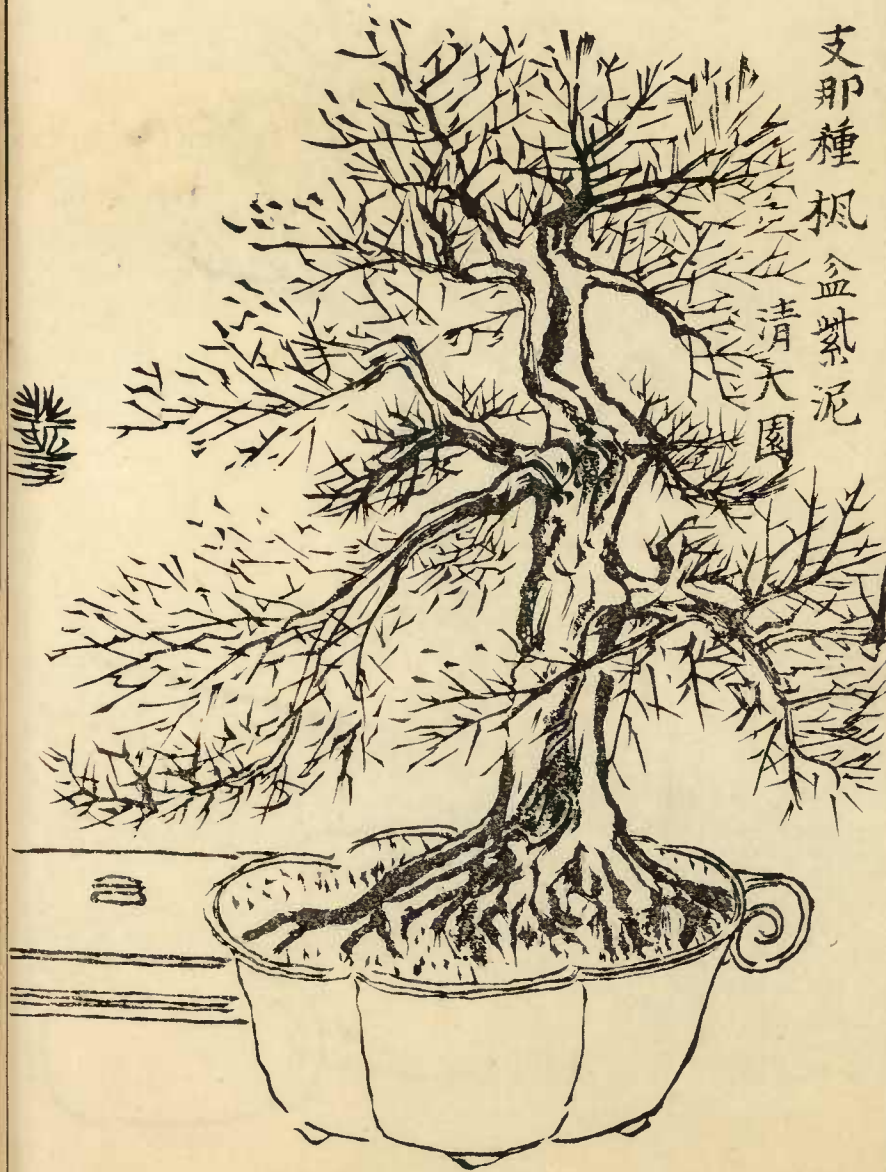 支那種 楓 盆紫泥
清大園